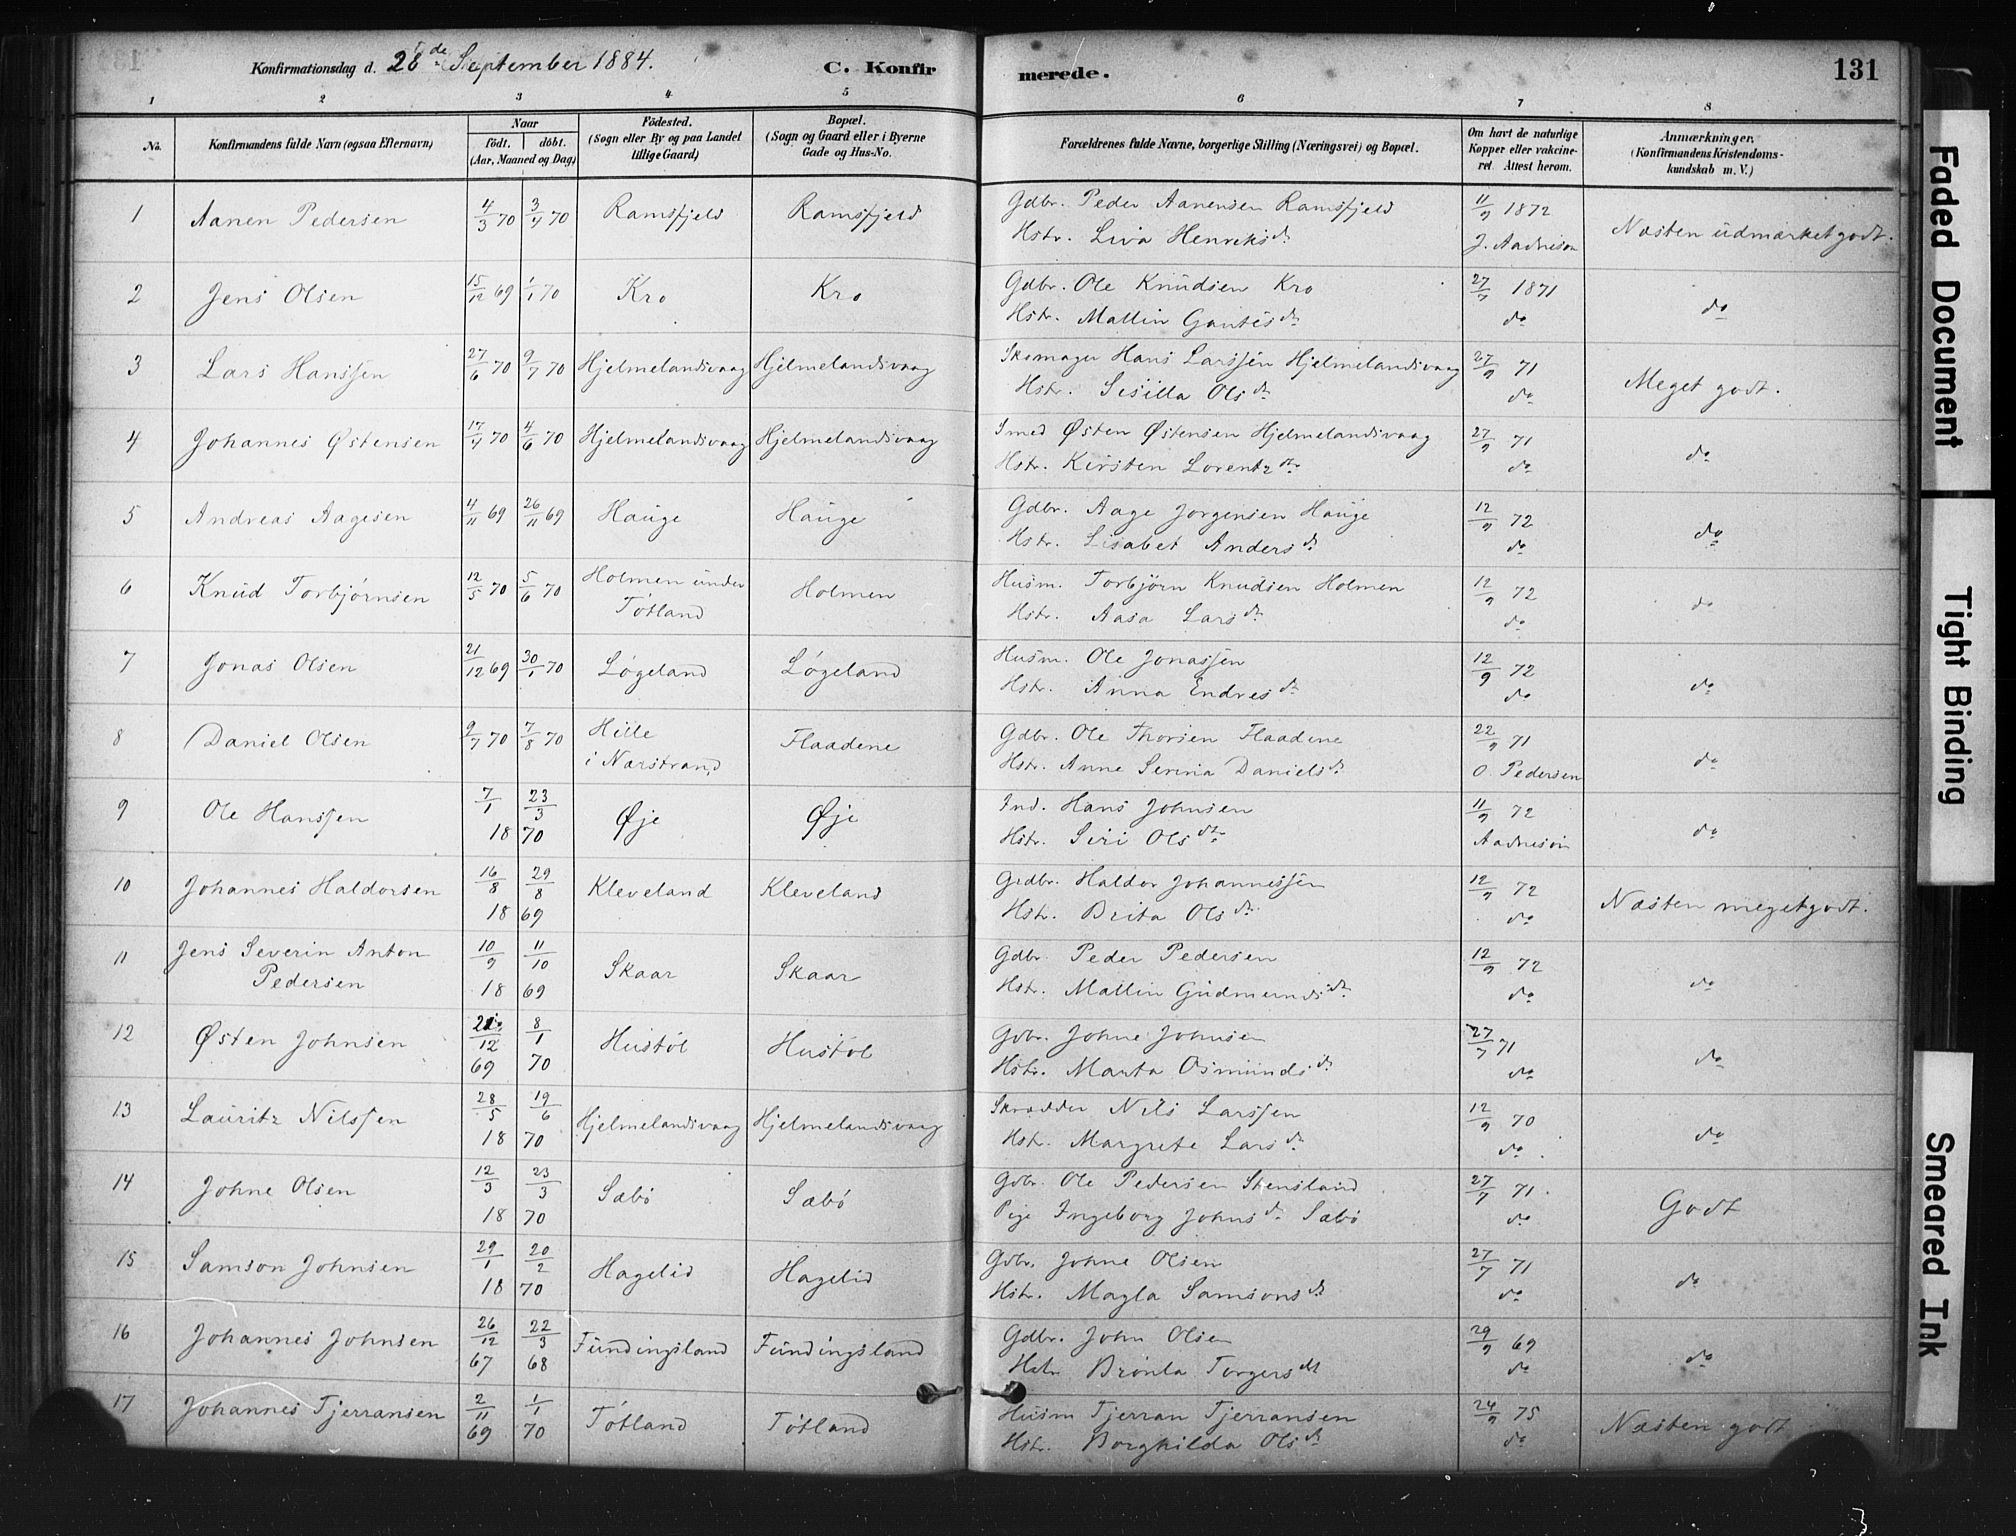 Konfirmationsdag d. 28de September 1884. C. Konfirmerede. 131
1 2 3 4 5 6 7 8
No. Konfirmandens fulde Navn (ogsaa Efternavn) Naar født. døbt. (Aar, Maaned og Dag) Fødested. (Sogn eller By og paa Landet tillige Gaard) Bopæl. (Sogn og Gaard eller i Byerne Gade og Hus-No. Forældrenes fulde Navne, borgerlige Stilling (Næringsvei) og Bopæl. Om havt de naturlige Kopper eller vakcineret. Attest herom. Anmærkninger. (Konfirmandens Kristendomskundskab m. V.)
1 Aanen Pedersen 4/3 70 3/4 70 Ramsfjeld Ramsfjeld Gdbr. Peder Aanensen Ramsfjeld 11/9 1872 Næsten udmærket godt.
Hstr. Liva Henriksdr J. Aadnesen
2 Jens Olsen 15/12 69 1/1 70 Kro Kro Gdbr. Ole Knudsen Kro 27/7 1871 do
Hstr. Mallin Gautesdr do
3 Lars Hanssen 27/6 70 9/7 70 Hjelmelandsvaag Hjelmelandsvaag Skomager Hans Larssen Hjelmelandsvaag 27/9 71 Meget godt.
Hstr. Sisilla Olsdr do
4 Johannes Østensen 17/4 70 4/6 70 Hjelmelandsvaag Hjelmelandsvaag Smed Østen Østensen Hjelmelandsvaag 27/9 71 do
Hstr. Kirsten Lorentzdr do
5 Andreas Aagesen 4/11 69 26/11 69 Hauge Hauge Gdbr. Aage Jørgensen Hauge 12/9 72 do
Hstr. Lisabet Andersdr do
6 Knud Torbjørnsen 12/5 70 5/6 70 Holmen under Tøtland Holmen Husm. Torbjørn Knudsen Holmen 12/9 72 do
Hstr. Aasa Larsdr do
7 Jonas Olsen 21/12 69 30/1 70 Løgeland Løgeland Husm. Ole Jonassen 12/9 72 do
Hstr. Anna Endresdr do
8 Daniel Olsen 9/7 70 7/8 70 Hille i Nærstrand Flaadene Gdbr. Ole Thorsen Flaadene 22/9 71 do
Hstr. Anne Serina Danielsdr O. Pedersen
9 Ole Hanssen 7/1 23/3 1870 Øje Øje Ind. Hans Johnsen 11/9 72 do
Hstr. Siri Olsdtr Aadnesen
10 Johannes Haldorsen 16/8 29/8 1869 Kleveland Kleveland Gdbr. Haldor Johannessen 12/9 72 Næsten meget godt.
Hstr. Brita Olsdr do
11 Jens Severin Anton Pedersen 10/9 11/10 1869 Skaar Skaar Gdbr. Peder Pedersen 12/9 72 do
Hstr. Mallin Gudmundsdr do
12 Østen Johnsen 12 69 8/1 70 Hustøl Hustøl Gdbr. Johne Johnsen 27/7 71 do
Hstr. Marta Osmundsdr do
13 Lauritz Nilssen 28/5 19/6 1870 Hjelmelandsvaag Hjelmelandsvaag Skrædder Nils Larssen 12/9 70 do
Hstr. Margrete Larsdr do
14 Johne Olsen 12/3 23/3 1870 Sæbø Sæbø Gdbr. Ole Pedersen Stensland 27/7 71. Godt
Pige Ingeborg Johnsdr Sæbø do
15 Samson Johnsen 29/1 20/2 1870 Hagelid Hagelid Gdbr. Johne Olsen 27/7 71 do
Hstr. Magla Samsonsdr do
16 Johannes Johnsen 26/12 67 22/3 68 Fundingsland Fundingsland Gdbr. John Olsen 29/9 69 do
Hstr Brønla Torgersdt do
17 Johannes Tjerransen 2/11 69 1/1 70 Tøtland Tøtland Husm Tjerran Tjerransen 24/9 75 Næsten godt
Hstr. Borghilda Olsdr do
Faded Document
Tight Binding
Smeared Ink